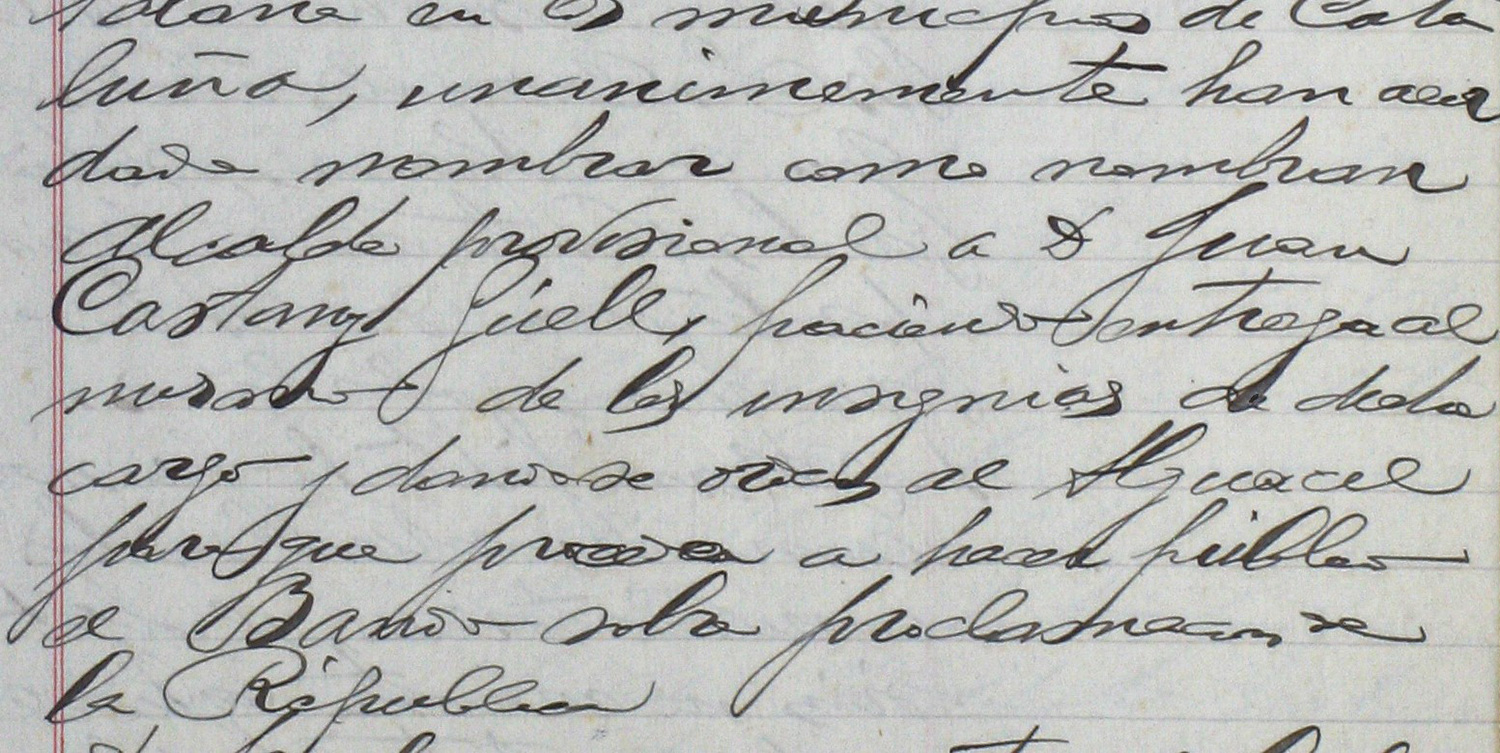 en los municipios de Cata
luña, unanimemente han acor
dado nombrar como nombran
Alcalde provisional a D Juan
Castany Güell, haciendo entrega al
mismo de las insignias de dicho
cargo y dandose orden al Alguacil
para que proceda a hacer público
el Bando sobre proclamacion de
la República